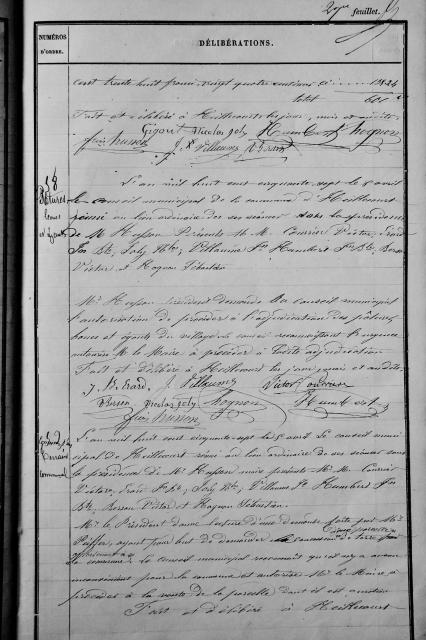 29me feuillet.
NUMÉROS
D'ORDRE.
DÉLIBÉRATIONS.
cent trente huit francs vingt quatre centimes ci 138.24
total 601
Fait et délibéré à Heillecourt les jour, mois et an dits.
Nicolas Joly Humbert Hognon
Husson J. Villaume
58
Pâtures
L'an mil huit cent cinquante sept le 8 avril
le conseil municipal de la commune d'Heillecourt
réuni au lieu ordinaire de ses séances sous la présidence
de M. Husson Présents M.M. Courrier Victor, Érard
Jn Bte, Joly Nas, Villaume Fs Humbert Jn Bte, Bersen
Victor, et Hognon Sébastien
Mr Husson président demande au conseil municipal
l'autorisation de procéder à l'adjudication des pâtures,
boues et égouts du village, le conseil reconnaissant l'urgence
autorise M. le Maire à procéder à ladite adjudication
Fait et délibéré à Heillecourt les jour, mois et an dits.
J. B. Érard J. Villaume Victor Courrier
Nicolas Joly Hognon Humbert
Husson
Terrain
communal
L'an mil huit cent cinquante sept le 8 avril le conseil muni-
cipal de Heillecourt réuni au lieu ordinaire de ses séances sous
la présidence de Mr Husson maire présents M.M. Courrier
Victor, Érard Jn Bte, Joly Nas, Villaume Fs Humbert Jn
Bte, Bersen Victor et Hognon Sébastien.
Mr le Président donne lecture d'une demande faite par Mr
Peiffer, ayant pour but de demander la concession de terre
à la commune. Le conseil municipal reconnaît qu'il n'y a aucun
inconvénient pour la commune et autorise Mr le Maire à
procéder à la vente de la parcelle dont il est question
Fait et délibéré à Heillecourt